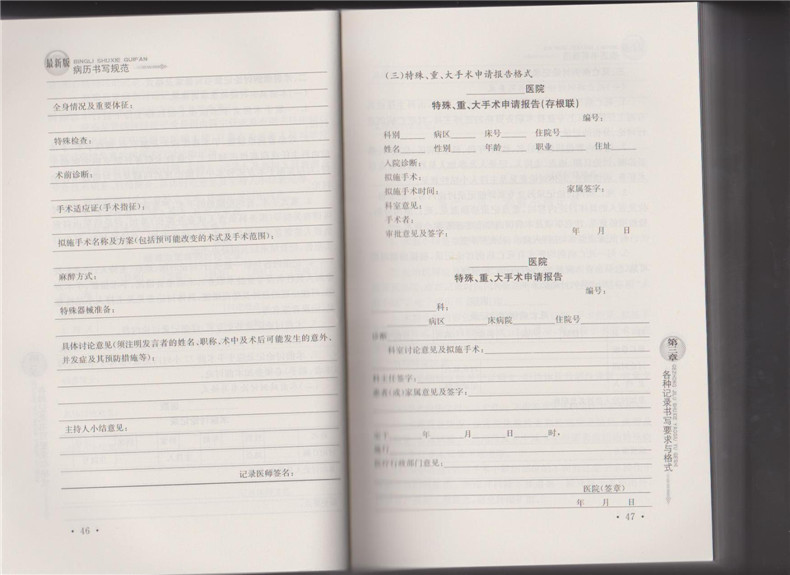 最新版
BINGLI SHUXIE GUIFAN
病历书写规范
全身情况及重要体征：
特殊检查：
术前诊断：
手术适应证(手术指征)：
拟施手术名称及方案(包括预可能改变的术式及手术范围)：
麻醉方式：
特殊器械准备：
具体讨论意见(须注明发言者的姓名、职称、术中及术后可能发生的意外、
并发症及其预防措施等)：
主持人小结意见：
记录医师签名：
• 46 •
(三)特殊、重、大手术申请报告格式
医院
特殊、重、大手术申请报告(存根联)
编号：
科别 病区 床号 住院号
姓名 性别 年龄 职业 住址
入院诊断：
拟施手术：
拟施手术时间： 家属签字：
科室意见：
手术者：
审批意见及签字： 年 月 日
医院
特殊、重、大手术申请报告
编号：
科：
病区 床病院 住院号
诊断
科室讨论意见及拟施手术：
科主任签字：
患者(或)家属意见及签字：
定于 年 月 日 时，
施行
医疗行政部门意见：
医院(签章)
年 月 日
• 47 •
第三章
各种记录书写要求与格式